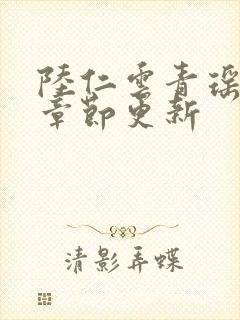 陸仁雲青瑶
章節更新
清影弄蝶